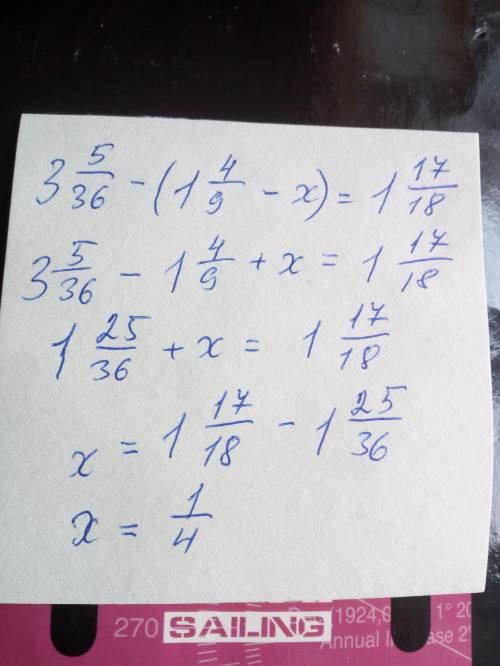 3 5/36 - (1 4/9 - x) = 1 17/18
3 5/36 - 1 4/9 + x = 1 17/18
1 25/36 + x = 1 17/18
x = 1 17/18 - 1 25/36
x = 1/4
270 SAILING
(1924,6 1° 20
Annual In ase 2'